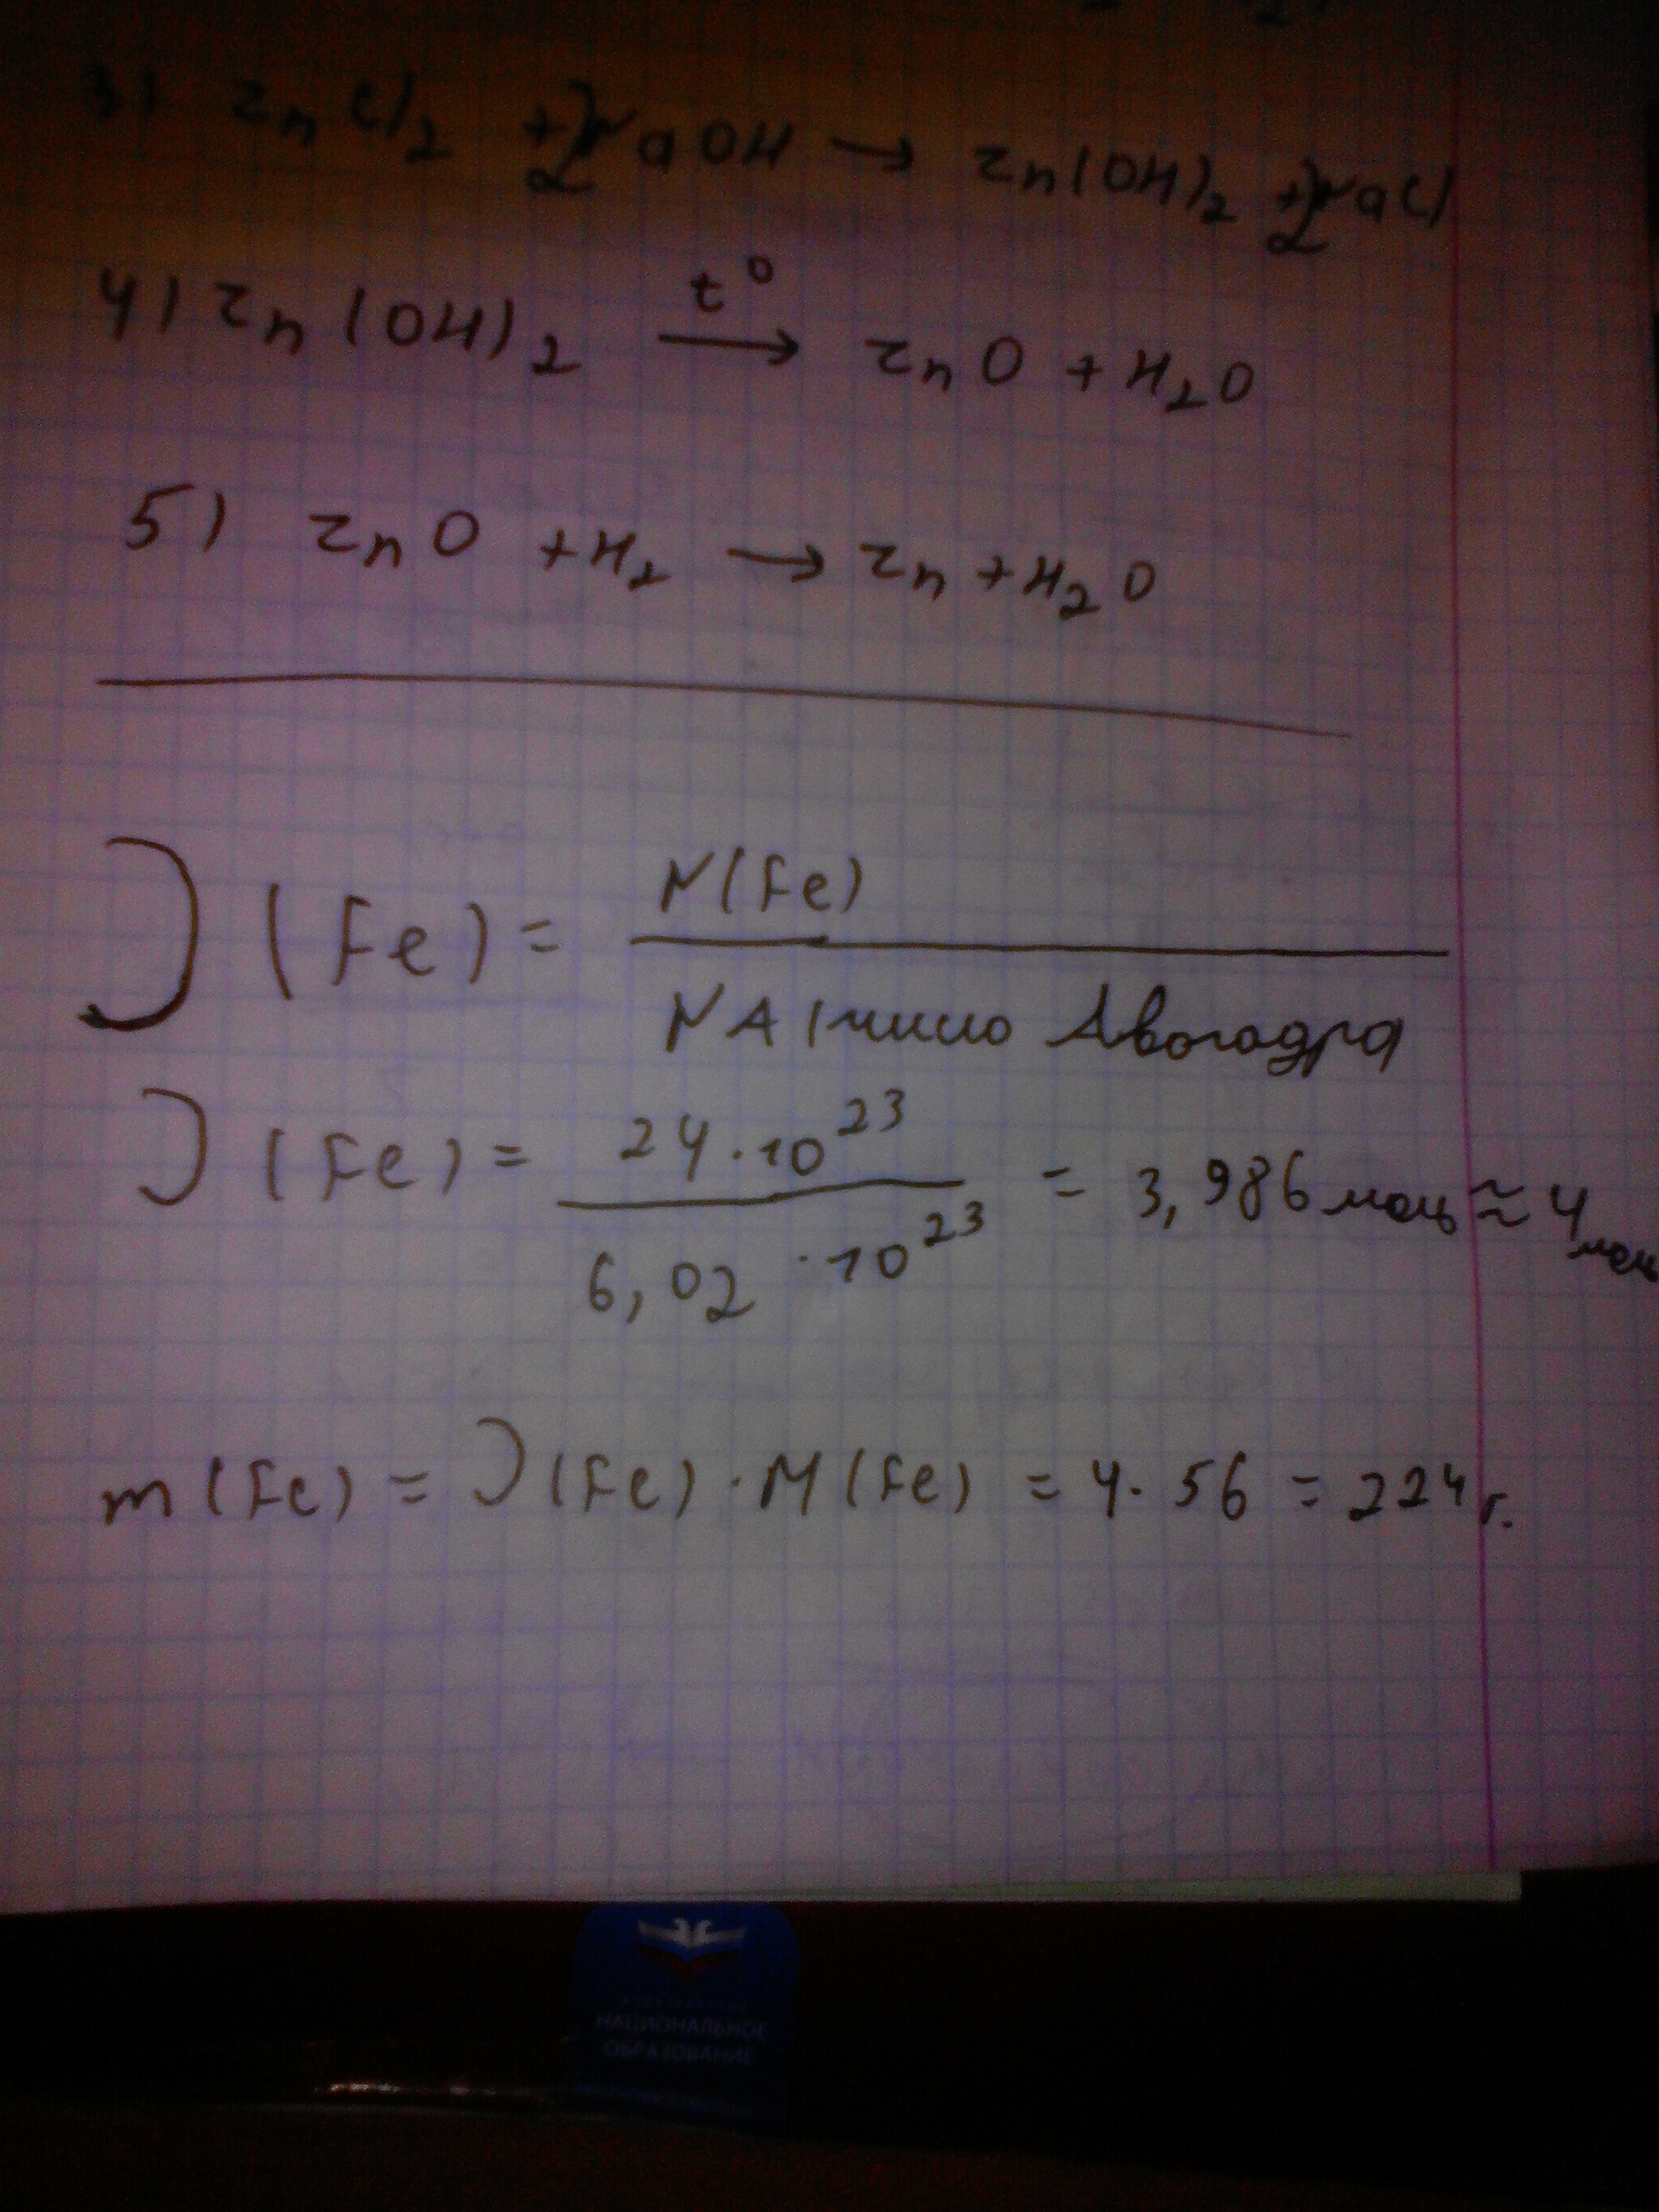 3) ZnCl2 + 2NaOH → Zn(OH)2 + 2NaCl
4) Zn(OH)2 t° → ZnO + H2O
5) ZnO + H2 → Zn + H2O
ν(Fe) = N(Fe) / NA (число Авогадра
ν(Fe) = 24·10^23 / 6,02·10^23 = 3,986 моль ≈ 4 моль
m(Fe) = ν(Fe)·M(Fe) = 4·56 = 224 г.
НАЦИОНАЛЬНОЕ
ОБРАЗОВАНИЕ